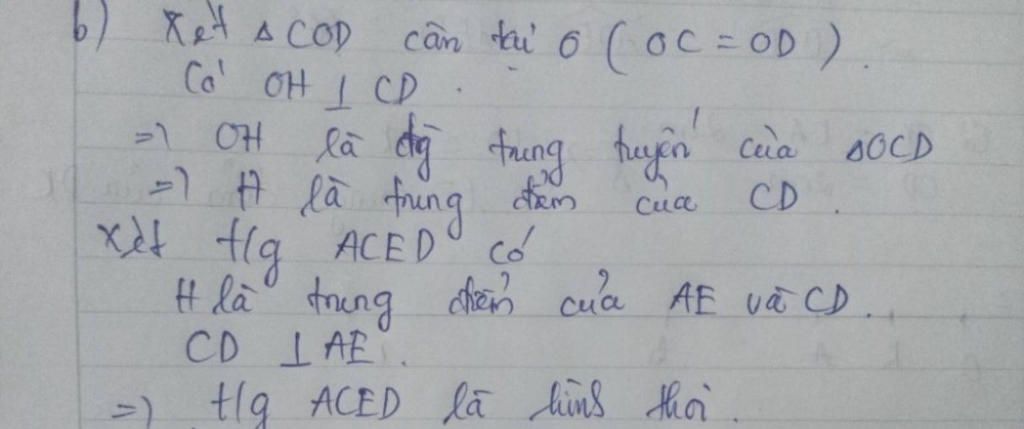 b) Xét △COD cân tại O (OC = OD).
Có OH ⊥ CD.
=> OH là đg trung tuyến của △OCD
=> H là trung điểm của CD.
Xét t/g ACED có
H là trung điểm của AE và CD.
CD ⊥ AE.
=> t/g ACED là hình thoi.